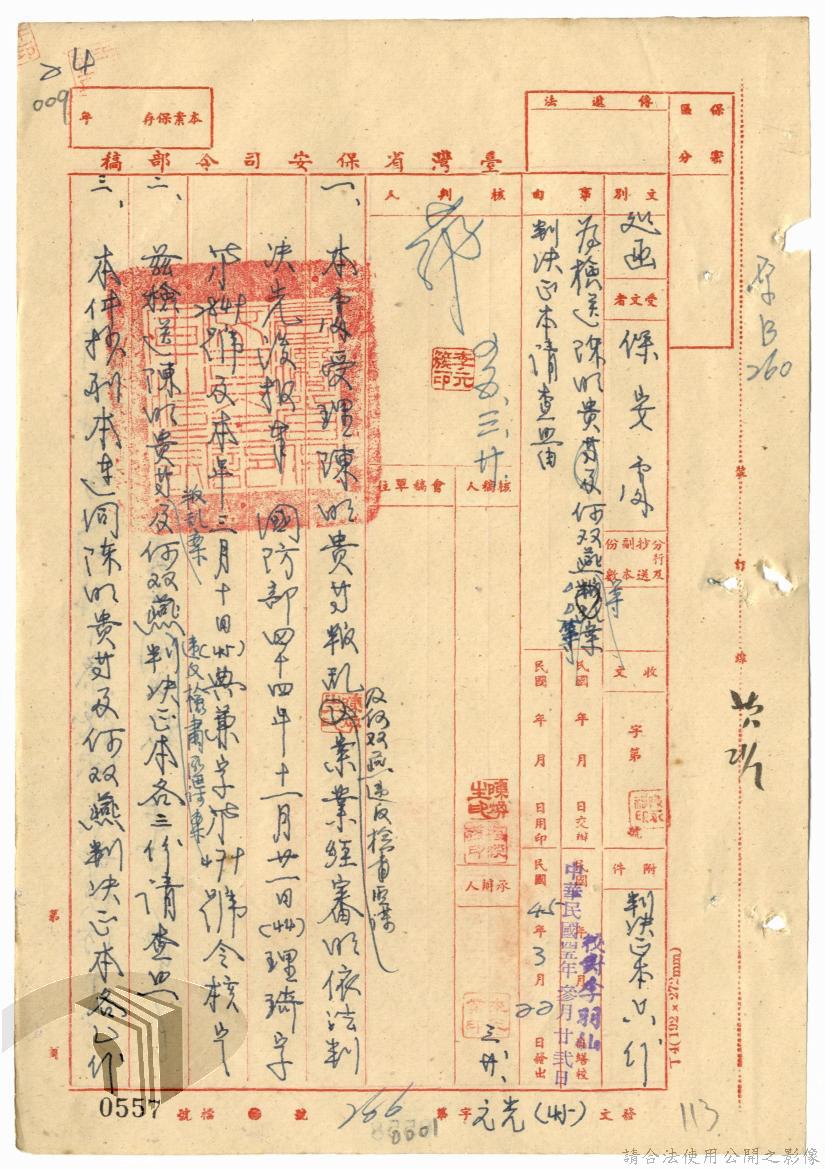 24
009
年 本案保存
臺灣省保安司令部稿
保密
區分
傳遞法
文別
巡函
受文者
保安處
分行及抄送副本份數
收文
字第
號
附件
判決正本六份
事由
為檢送陳明貴等及何双燕等案
判決正本請查照由
民國 年 月 日交辦
民國 年 月 日用印
民國45年3月22日發出
中華民國四五年參月廿貳日
校對李羽山
核判人
四五、三、廿
李元簇印
核稿人
會稿單位
承辦人
三、廿、
一、本處受理陳明貴等叛亂
及何双燕違反檢肅匪諜
案業經審明依法判
決先後報奉 國防部四十四年十一月廿一日(44)理琦字
第2841號及本年三月十日(45)典兼字第471號令核定
二、茲檢送陳明貴等
叛亂案
及何双燕
違反檢肅匪諜案
判決正本各三份請查照
三、本件抄副本連同陳明貴等及何双燕判決正本各乙份
原B
260
裝
訂
線
第 頁
T4(192×272mm)
發文
(45)
字第
266
號
檔號
0557
0001
113
請合法使用公開之影像